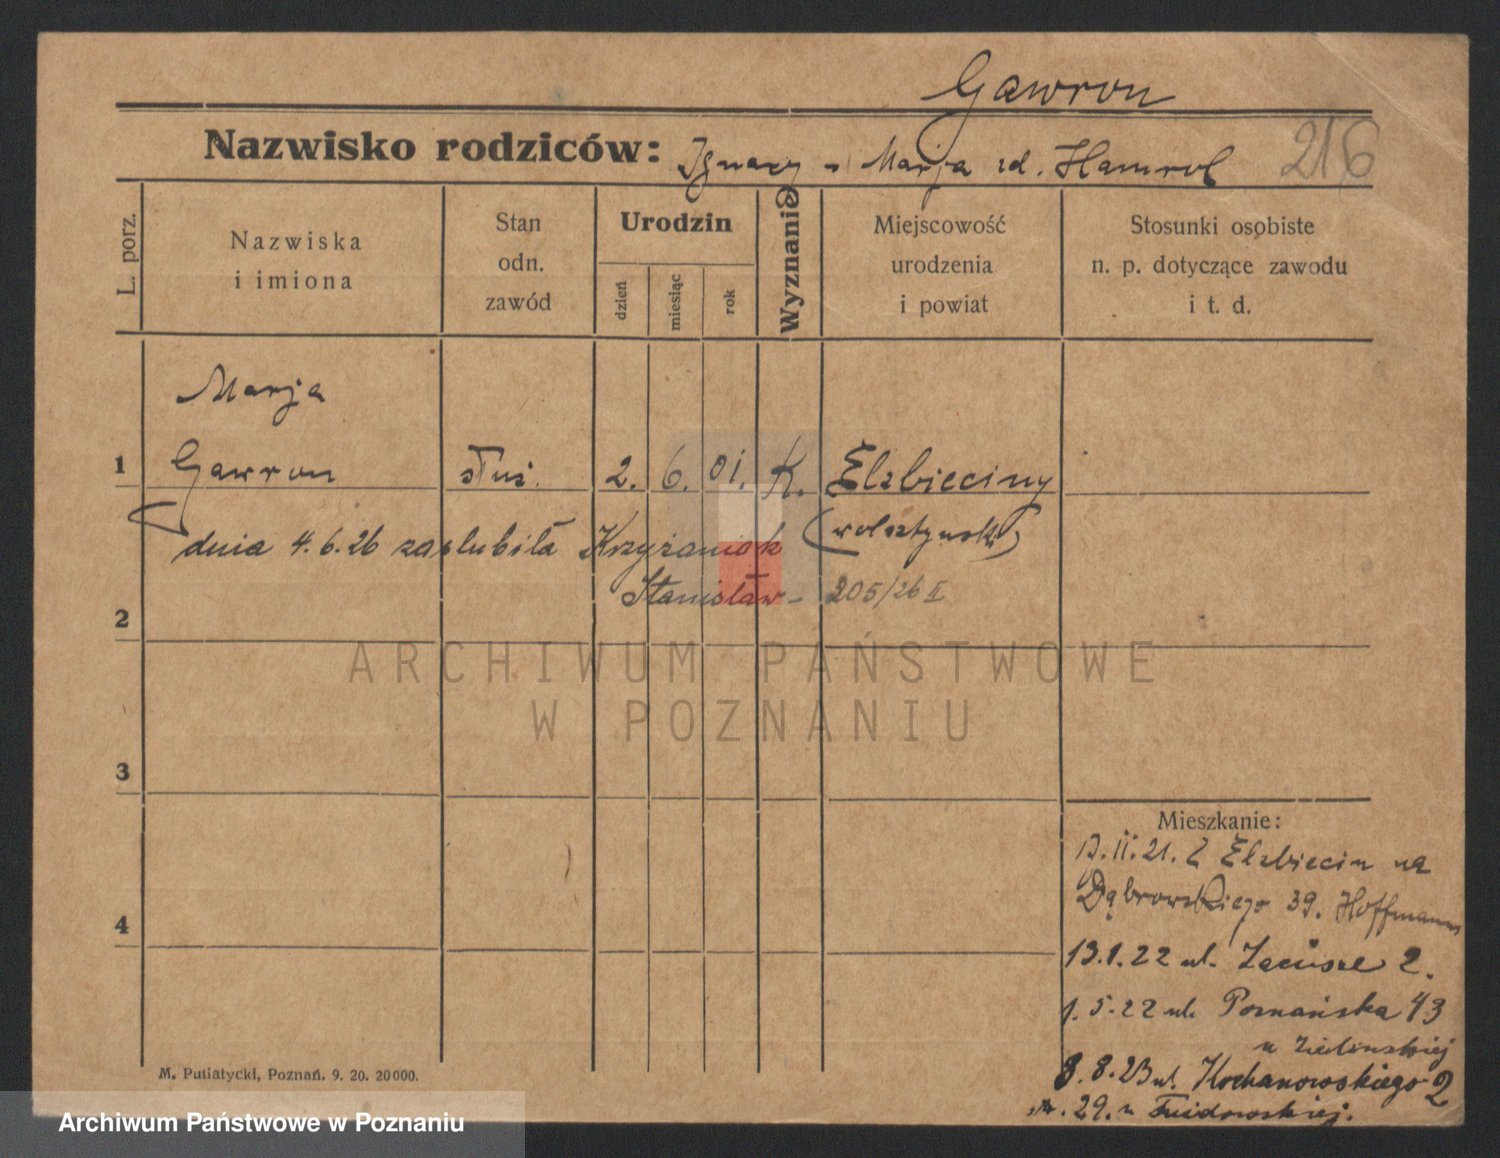 Gawron
216
Nazwisko rodziców: Ignacy - Marja zd. Hamrol
L. porz.
Nazwiska i imiona
Stan odn. zawód
Urodzin
dzień
miesiąc
rok
Wyznanie
Miejscowość urodzenia i powiat
Stosunki osobiste n. p. dotyczące zawodu i t. d.
Marja
1 Gawron służ. 2. 6. 01. K. Elzbieciny
(wolsztyński)
dnia 4.6.26 zaślubiła Krzyżaniok
Stanisław - 205/26 II
2
3
4
Mieszkanie:
12.II.21. Z Elzbiecin na
Dąbrowskiego 39. Hoffmann
13.1.22 ul. Zacisze 2.
1.5.22 ul. Poznańska 43
u Zielinskiej
8.8.23 ul. Kochanowskiego 2
29. u
M. Putiatycki, Poznań. 9. 20. 20000.
ARCHIWUM PAŃSTWOWE
W POZNANIU
Archiwum Państwowe w Poznaniu